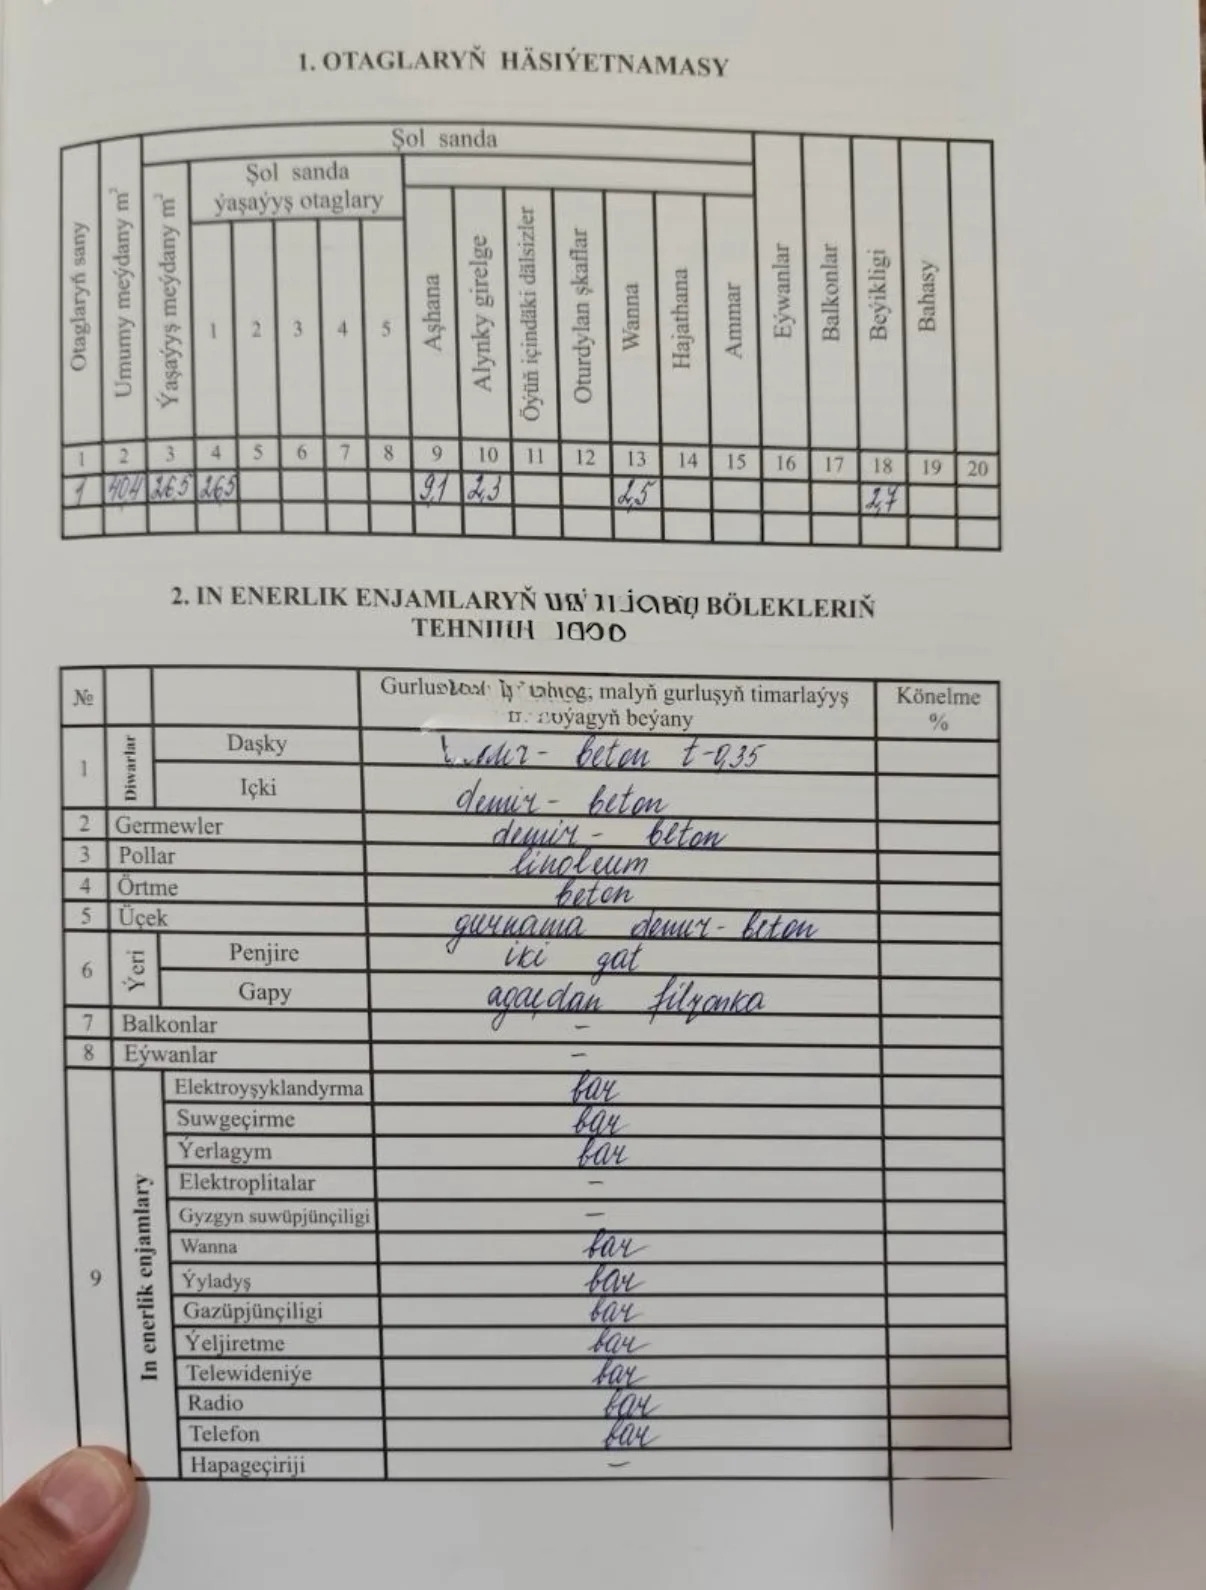 1. OTAGLARYŇ HÄSIÝETNAMASY
Şol sanda
Şol sanda
ýaşaýyş otaglary
Otaglaryň sany
Umumy meýdany m²
Ýaşaýyş meýdany m²
1 2 3 4 5
Aşhana
Alynky girelge
Öýüň içindäki dälsizler
Oturdylan şkaflar
Wanna
Hajathana
Ammar
Eýwanlar
Balkonlar
Beýikligi
Bahasy
1 2 3 4 5 6 7 8 9 10 11 12 13 14 15 16 17 18 19 20
1 40,4 26,5 26,5 9,1 2,3 2,5 2,7
2. IN ENERLIK ENJAMLARYŇ BÖLEKLERIŇ
№
malyň gurluşyň timarlaýyş
beýany
Könelme
%
1 Diwarlar Daşky beton t-0,35
Içki demir-beton
2 Germewler demir-beton
3 Pollar linoleum
4 Örtme beton
5 Üçek gurnama demir-beton
6 Ýeri Penjire iki gat
Gapy agaçdan filyonka
7 Balkonlar –
8 Eýwanlar –
9 In enerlik enjamlary
Elektroyşyklandyrma bar
Suwgeçirme bar
Ýerlagym bar
Elektroplitalar –
Gyzgyn suwüpjünçiligi –
Wanna bar
Ýyladyş bar
Gazüpjünçiligi bar
Ýeljiretme bar
Telewideniýe bar
Radio bar
Telefon bar
Hapageçiriji –